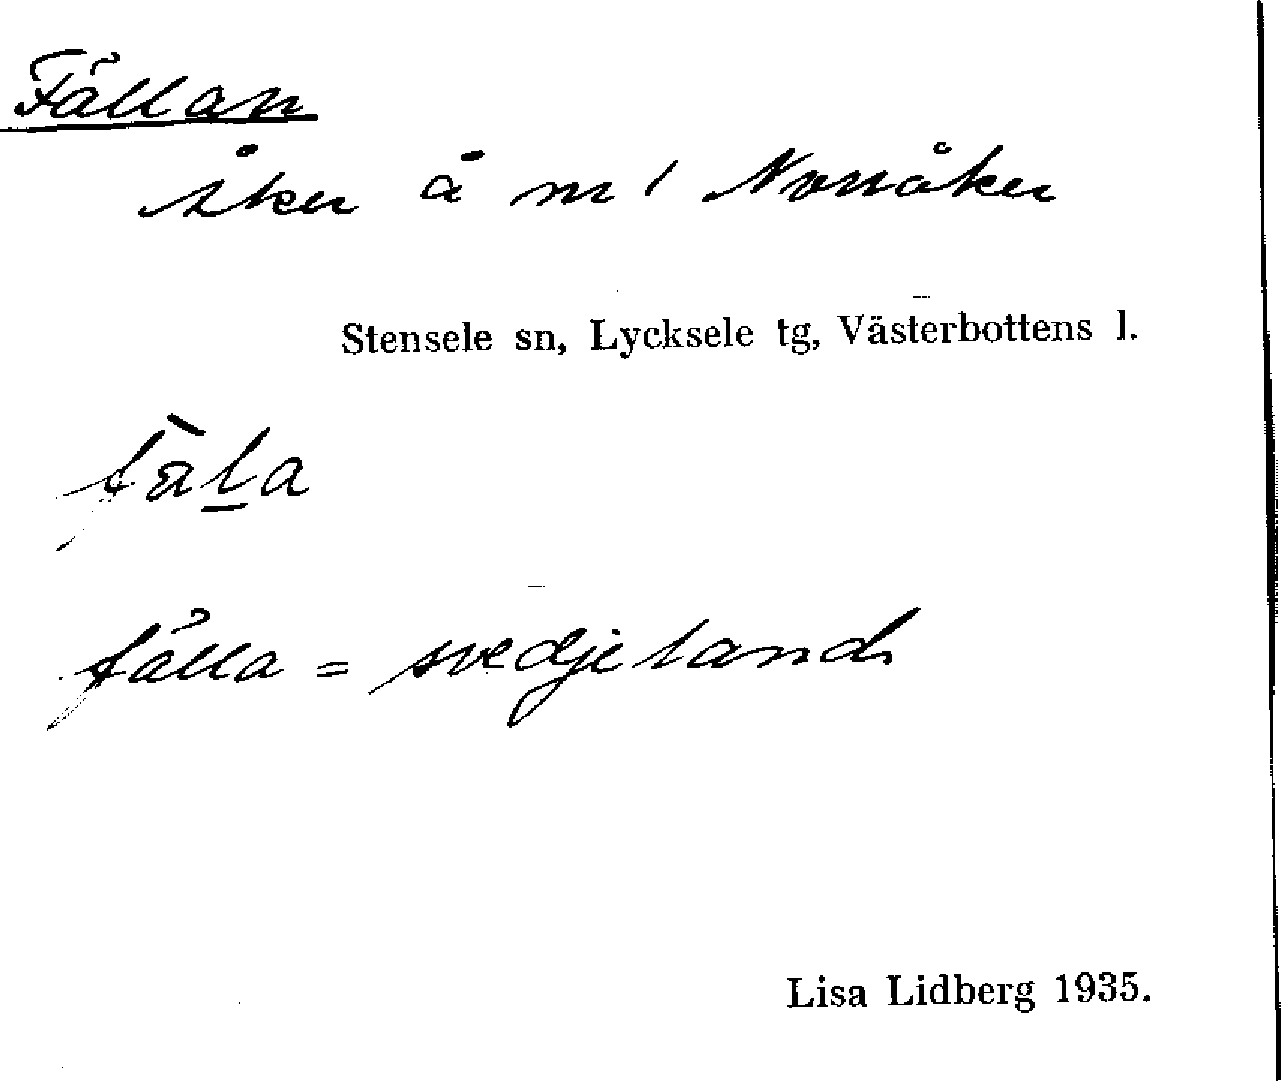 Fällan
Åker å nr 1 Norråker
Stensele sn, Lycksele tg, Västerbottens l.
fàl̠a
fälla = svedjeland
Lisa Lidberg 1935.